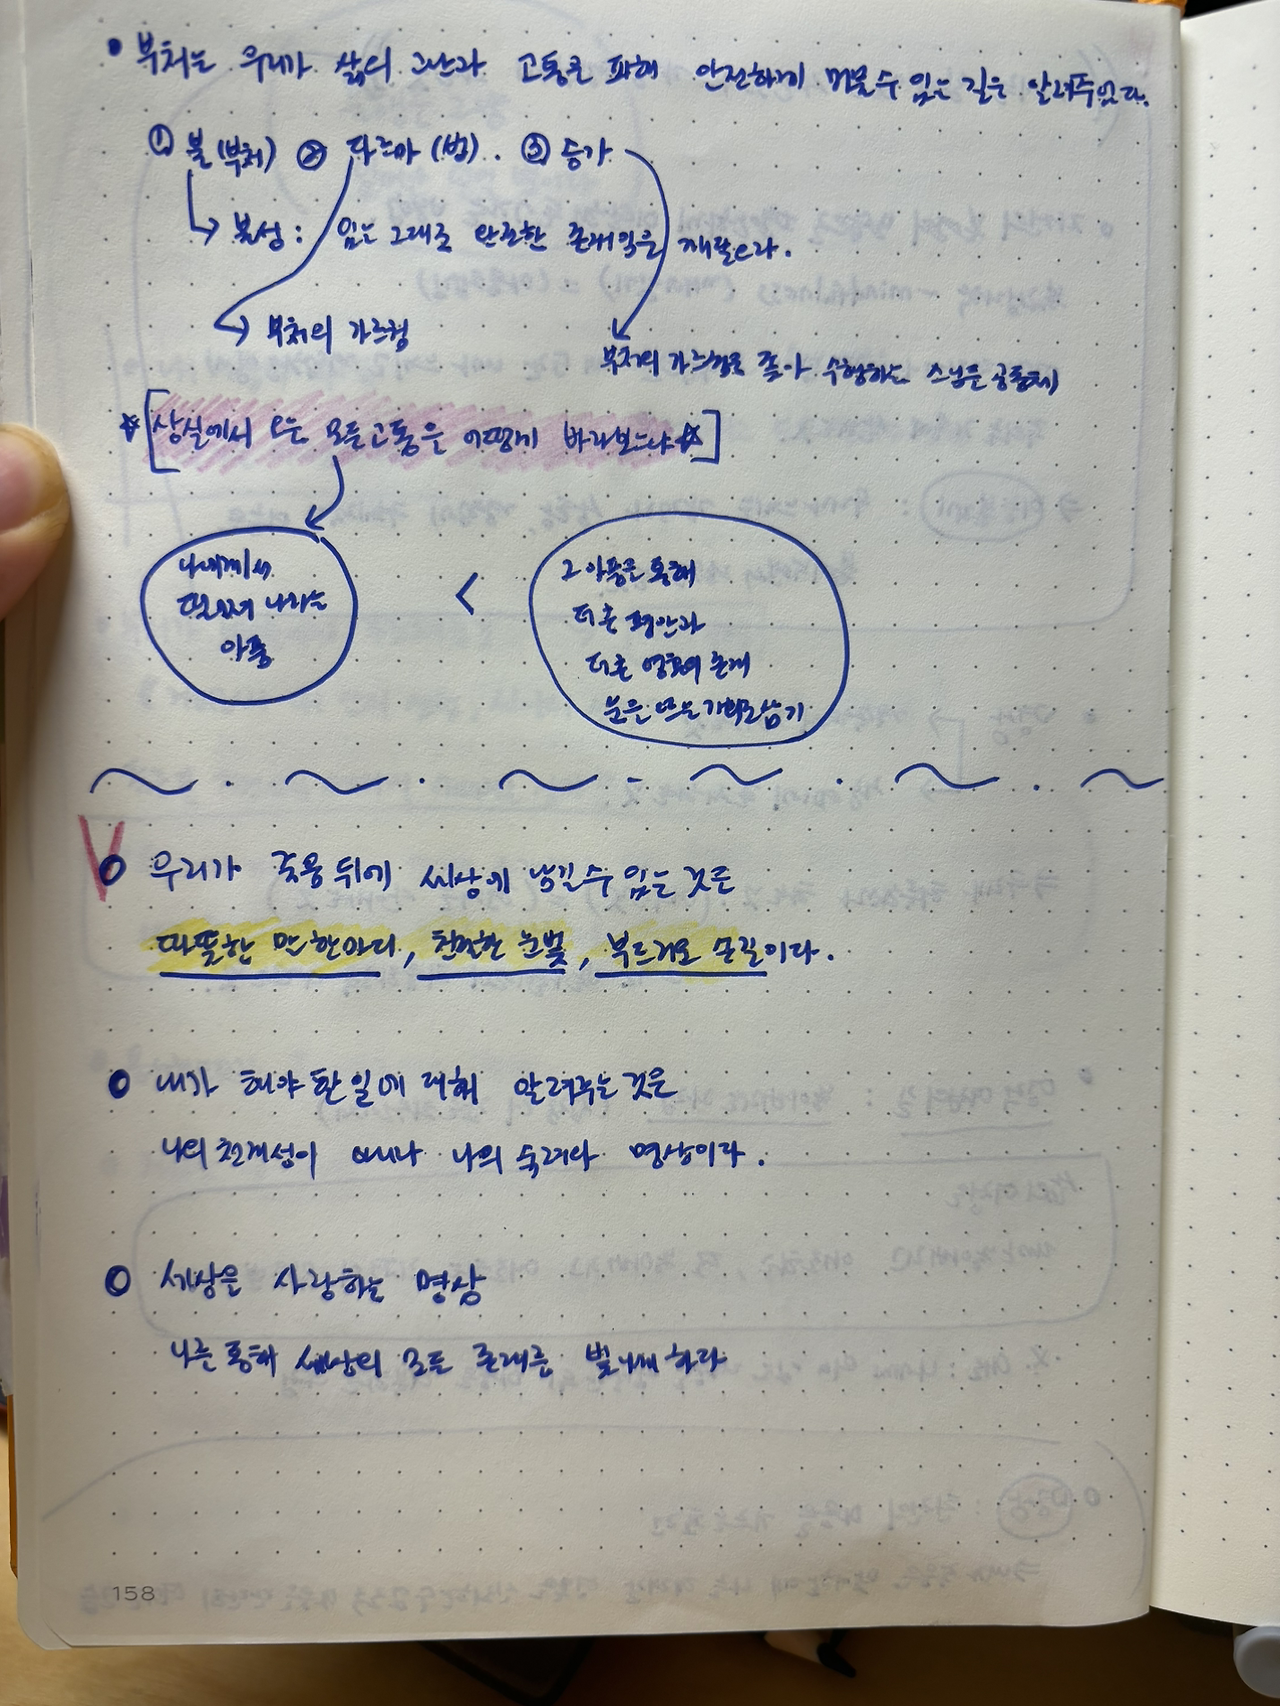 • 부처는 우리가 삶의 고난과 고통을 피해 안전하게 머물 수 있는 길을 알려주었다.
① 불(부처) ② 다르마(법). ③ 승가
불성: 있는 그대로 완전한 존재임을 깨달으라.
부처의 가르침
부처의 가르침을 쫓아 수행하는 스님들 공동체
☆[상실에서 오는 모든 고통을 어떻게 바라보느냐☆]
나에게서
떨어져 나가는
아픔
<
그 아픔을 통해
더 큰 평안과
더 큰 영혼의 존재
눈을 뜨는 기회로 삼기
우리가 죽음 뒤에 세상에 남길 수 있는 것은
따뜻한 말 한마디, 친절한 눈빛, 부드러운 손길이다.
내가 해야 할 일에 대해 알려주는 것은
나의 천재성이 아니라 나의 숙려와 명상이다.
세상을 사랑하는 명상
나를 통해 세상의 모든 존재를 빛나게 하라
158